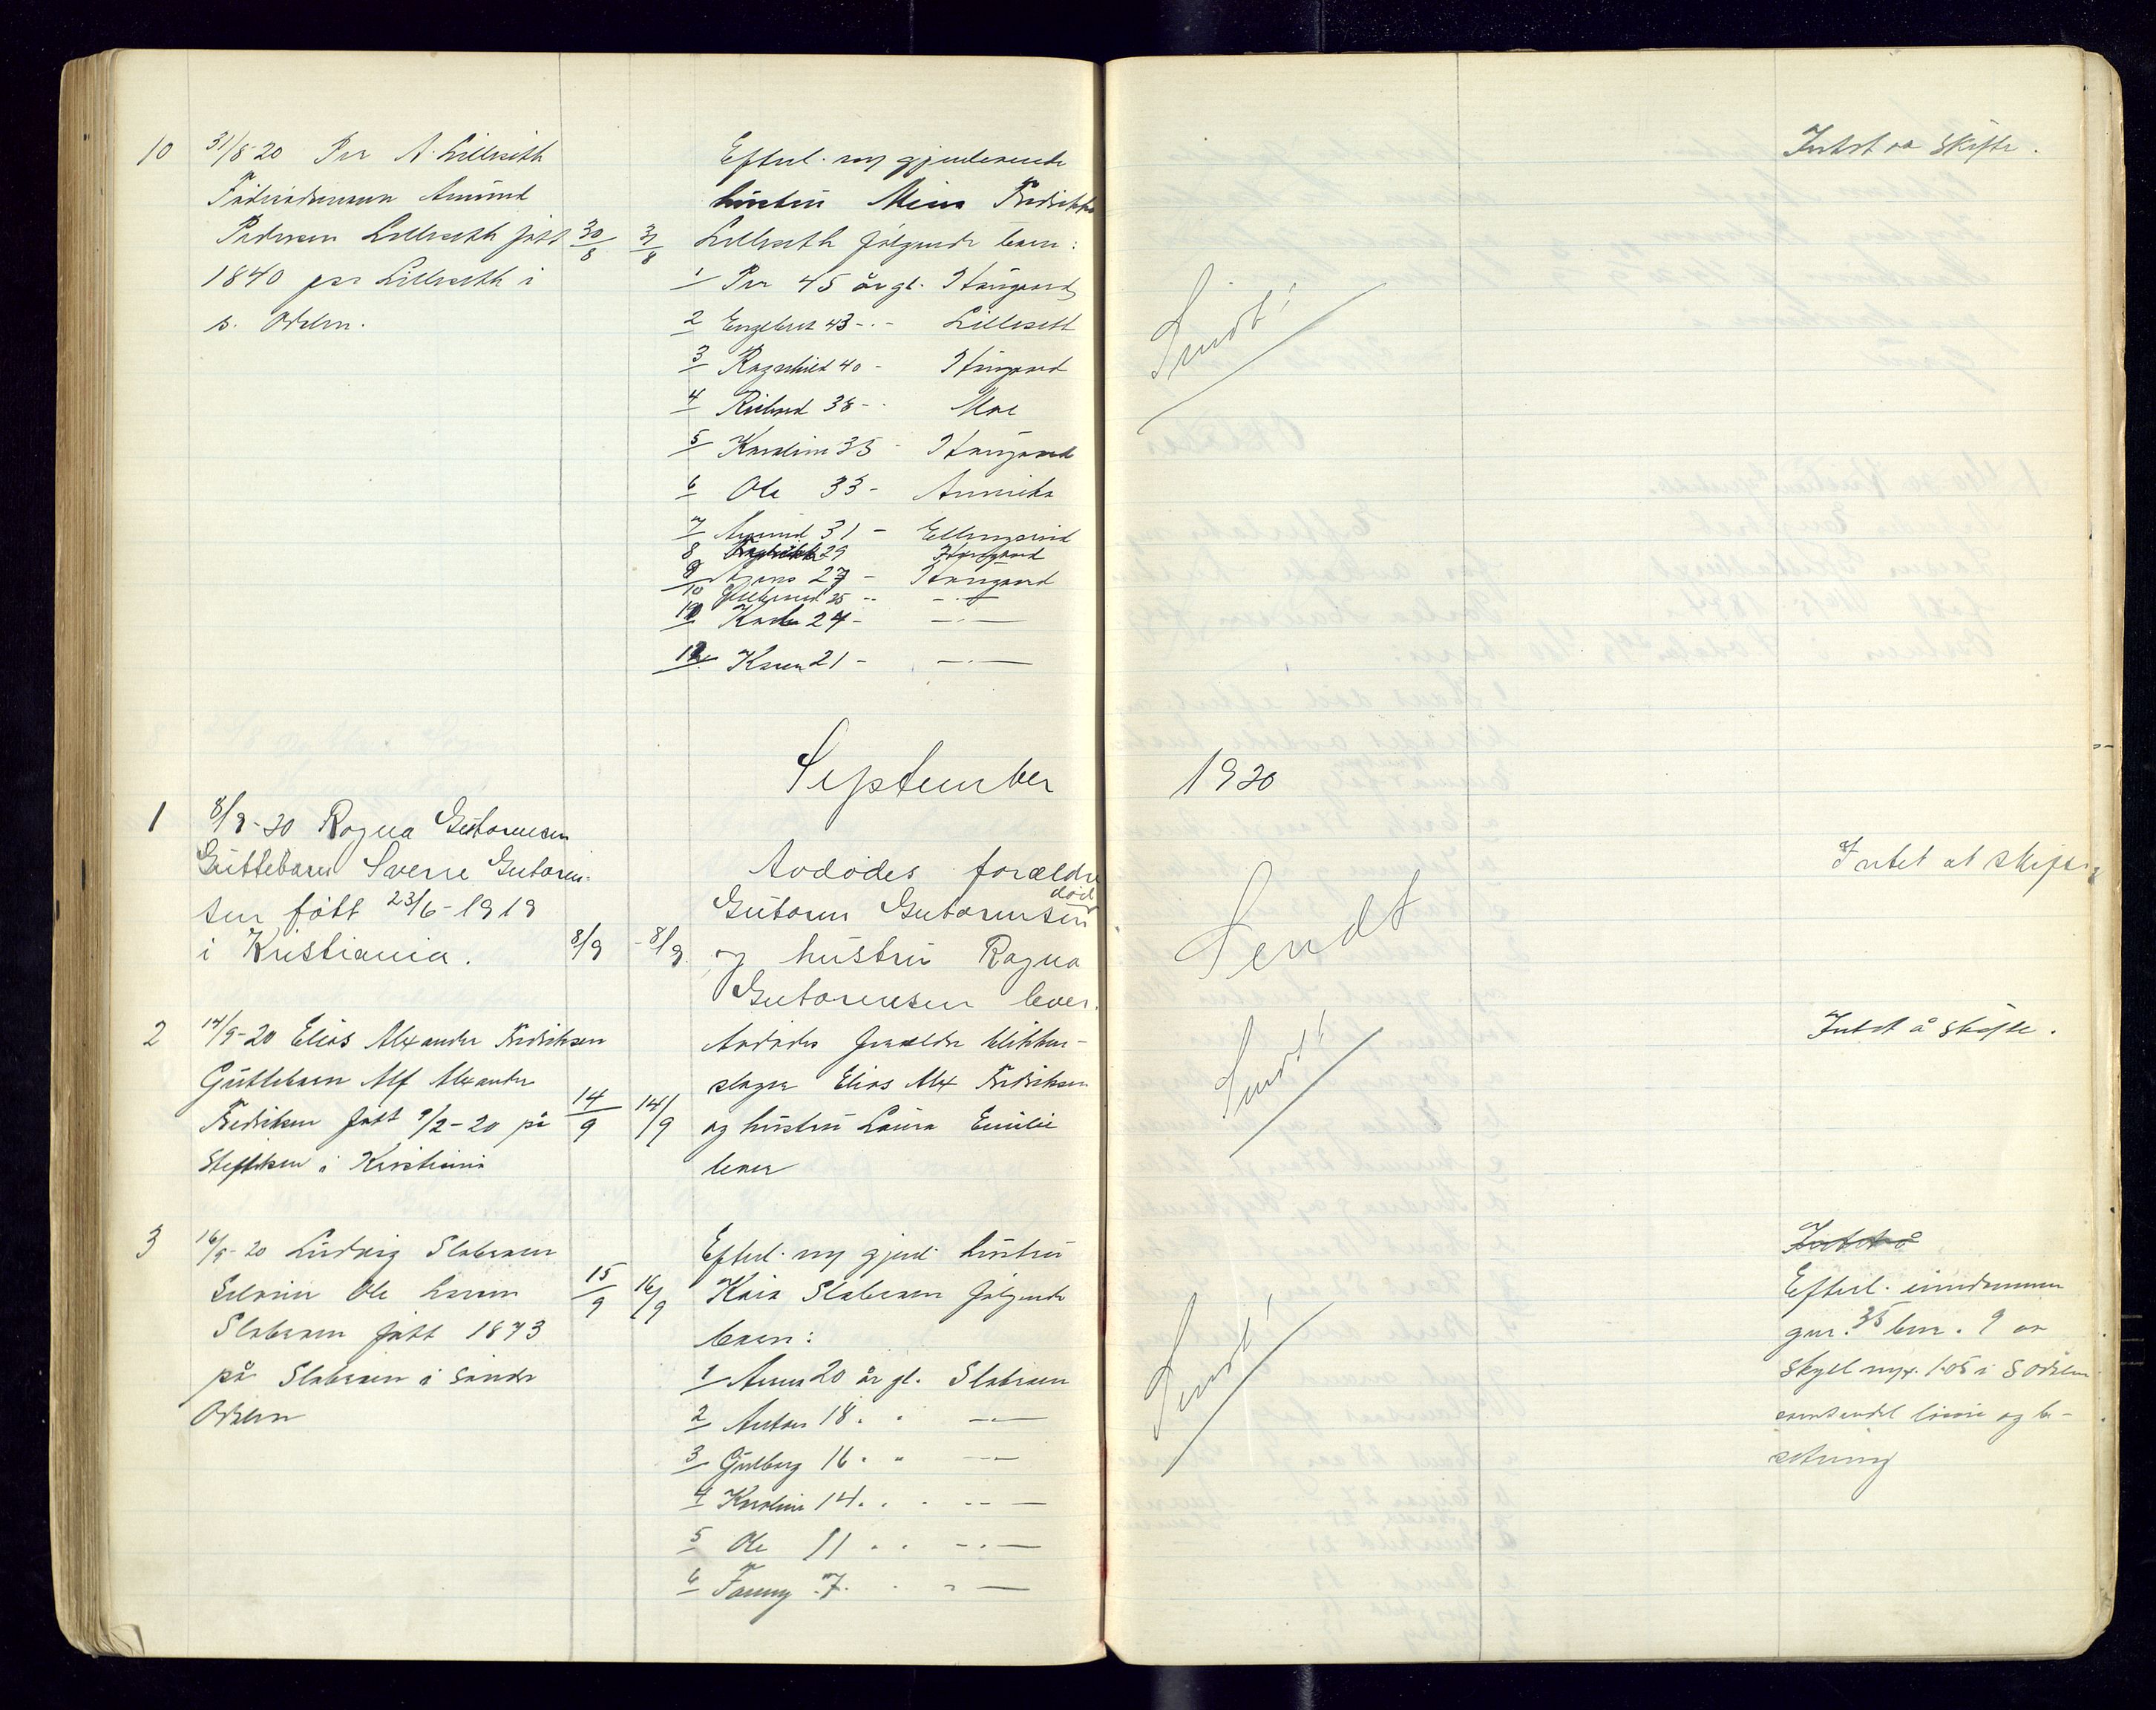 10 31/8-20 Per A. Lilleseth
Føderådsmann Amund
Pedersen Lilleseth født 30/8 31/8
1840 paa Lilleseth i
s. Odalen.
Efterl. sig gjenlevende
hustru Mina Fredrikke
Lilleseth følgende barn:
1/ Per 45 år gl. Haugard
2 Engebret 43 -.- Lilleseth
3 Ragnhild 40 - Haugard
4 Rikard 38 - Moe
5 Karoline 35 - Haugard
6 Ole 33 - Amerika
7 Amund 31 - Ellingsrud
8 29 Haugard
9 Hans 27 - Haugard
10 25 -- -.-
11 24 - -.-
12. Karen 21 - -.-
Intet aa skifte.
Sendt!
September 1920
1 8/9-20 Ragna Gutormsen
Guttebarn Sverre Gutorm-
sen født 23/6-1919
i Kristiania. 8/9 - 8/9
Avdødes forældre
Gutorm Gutormsen død
og hustru Ragna
Gutormsen lever.
Sendt
Intet at skifte
2 14/9-20 Elias Alexander Fredriksen
Guttebarn Alf Alexander
Fredriksen født 9/2-20 på 14/9 14/9
Stiftelsen i Kristiania
Avdødes forældre blikken-
slager Elias Alex Fredriksen
og hustru Laura Emilie
lever
Sendt!
Intet å skifte.
3 16/9-20 Ludvig Slabraaen
Selveier Ole Larsen 15/9 16/9
Slabraaen født 1873
på Slabraaen i Søndre
Odalen
Efterl. sig gjenl. hustru
Kaia Slabraaen følgende
barn:
1/ Anna 20 år gl. Slabraaen
2/ Anton 18 . . -.-
3/ Gudborg 16 . " -.-
4 Karoline 14 . . -.-
5 Ole 11 . . -.-
6 Fanny 7 . . -.-
Sendt!
Intet å
Efterl. eiendommen
gnr. 35 bnr. 9 av
skyld myr. 1.05 i S Odalen
samt endel løsøre og be-
setning